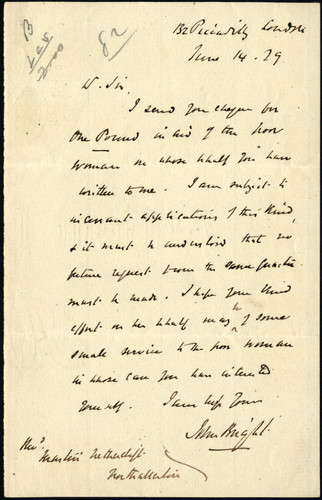 82
132 Piccadilly London
June 14. 79
D. Sir,
I send you cheque for
One Pound in aid of the poor
woman on whose behalf you have
written to me. I am subject to
incessant applications of this kind,
& it must be understood that no
future request from the same quarter
must be made. I hope your kind
effort on her behalf may be of some
small service to the poor woman
in whose case you have interested
yourself. I am resp yours
John Bright.
Rev.
Martin Nethercliff
Northallerton